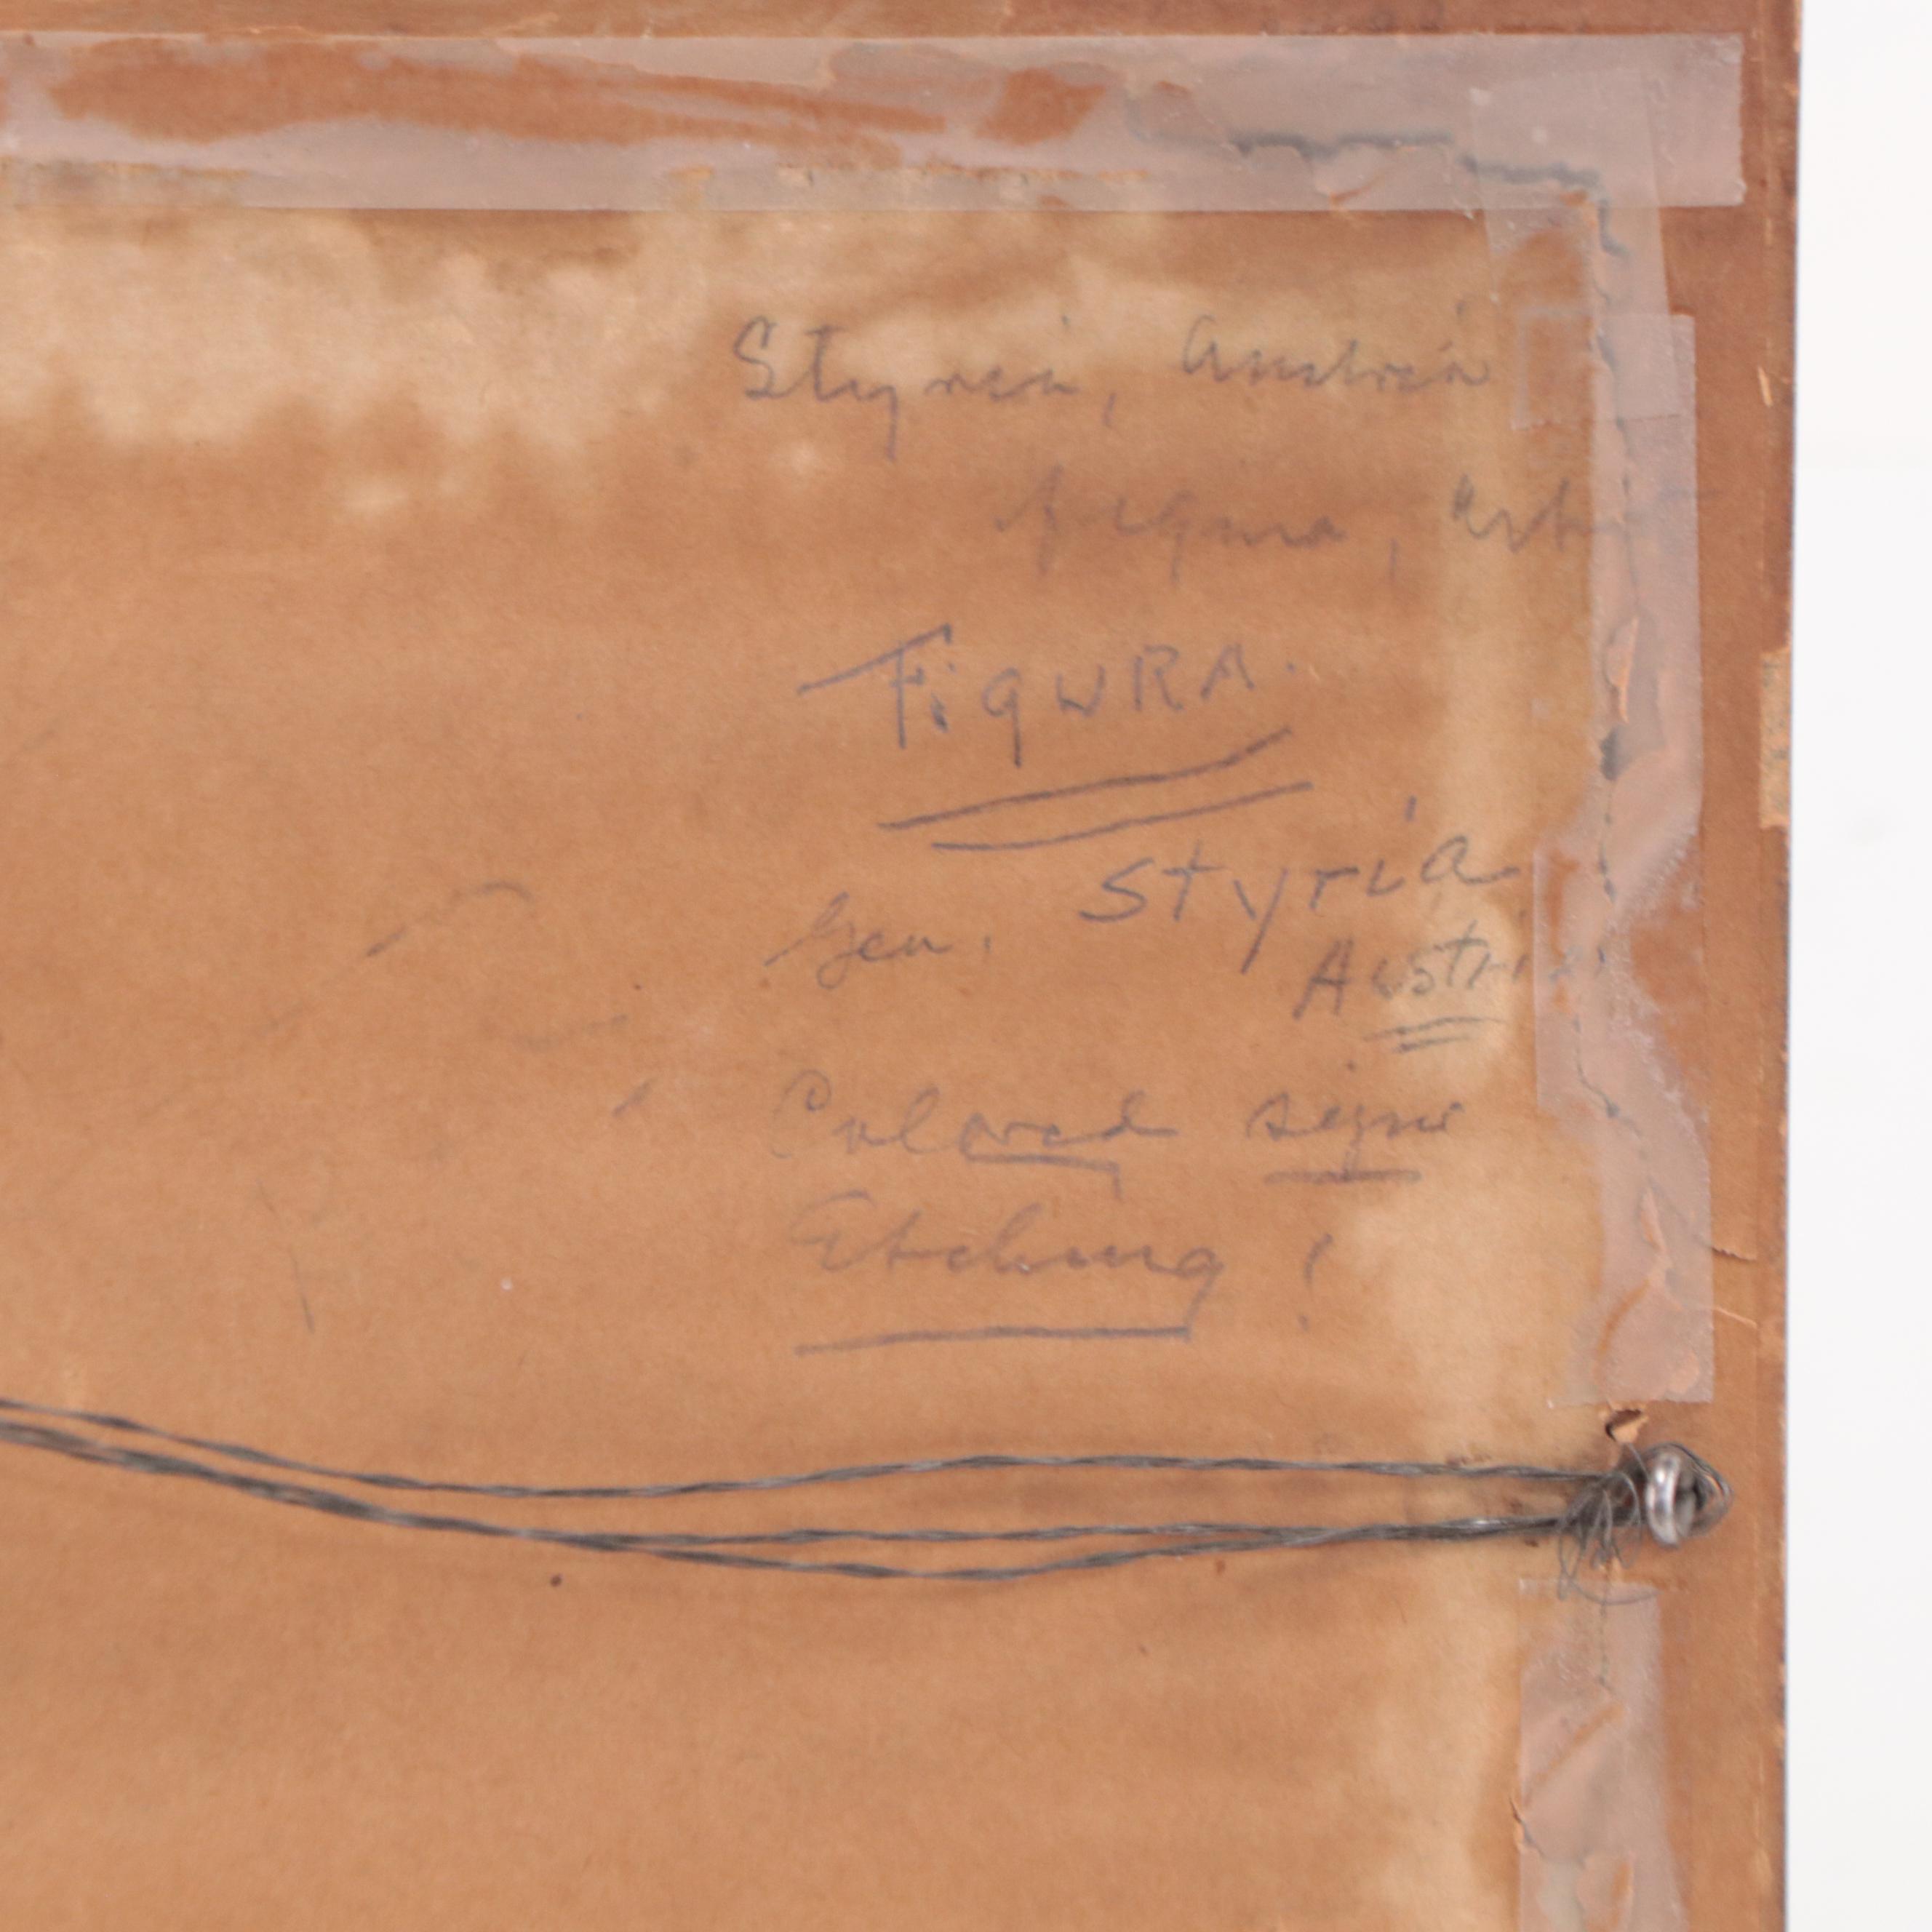 Styria, Austria
Figura, Art
FiguRA.
Styria
Gen.
Austri
Colored sign
Etching!